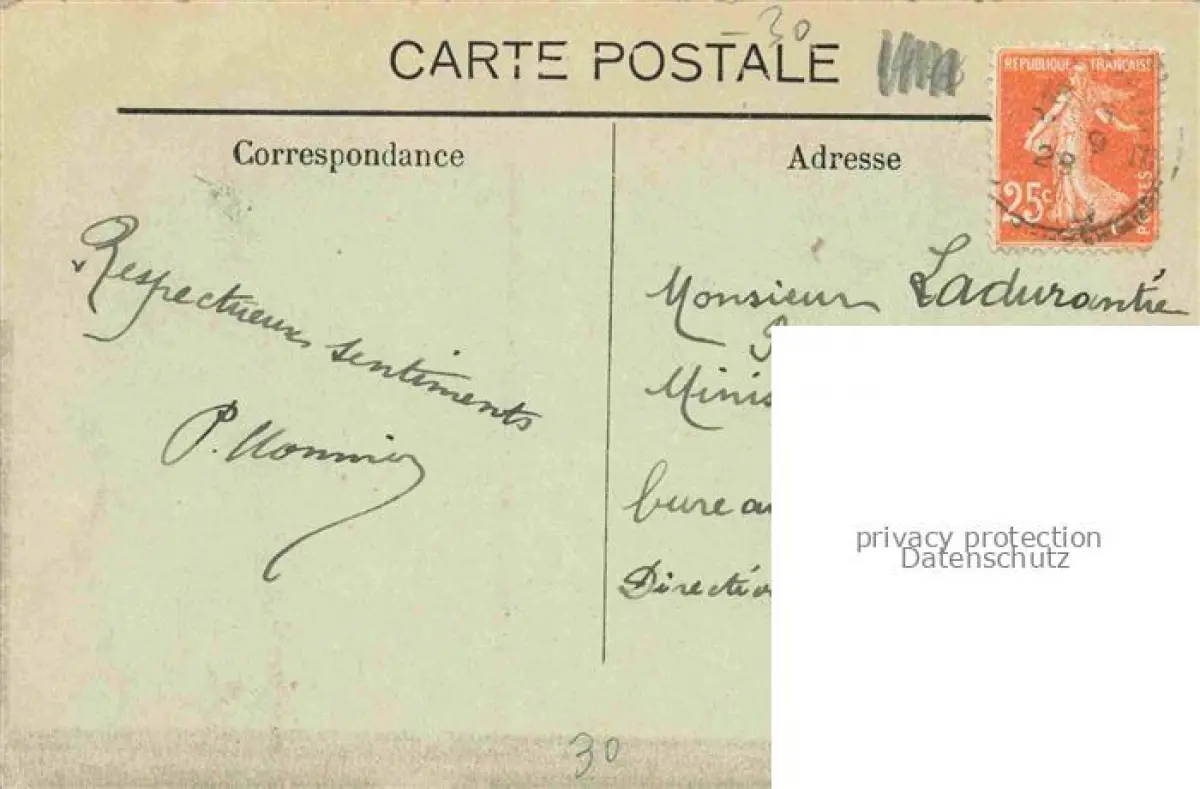 30
CARTE POSTALE
REPUBLIQUE FRANÇAISE
25c
POSTES
Correspondance
Respectueux sentiments
P. Monnier
Adresse
Monsieur Ladurantie
Minis
bureau
Direction
privacy protection
Datenschutz
30